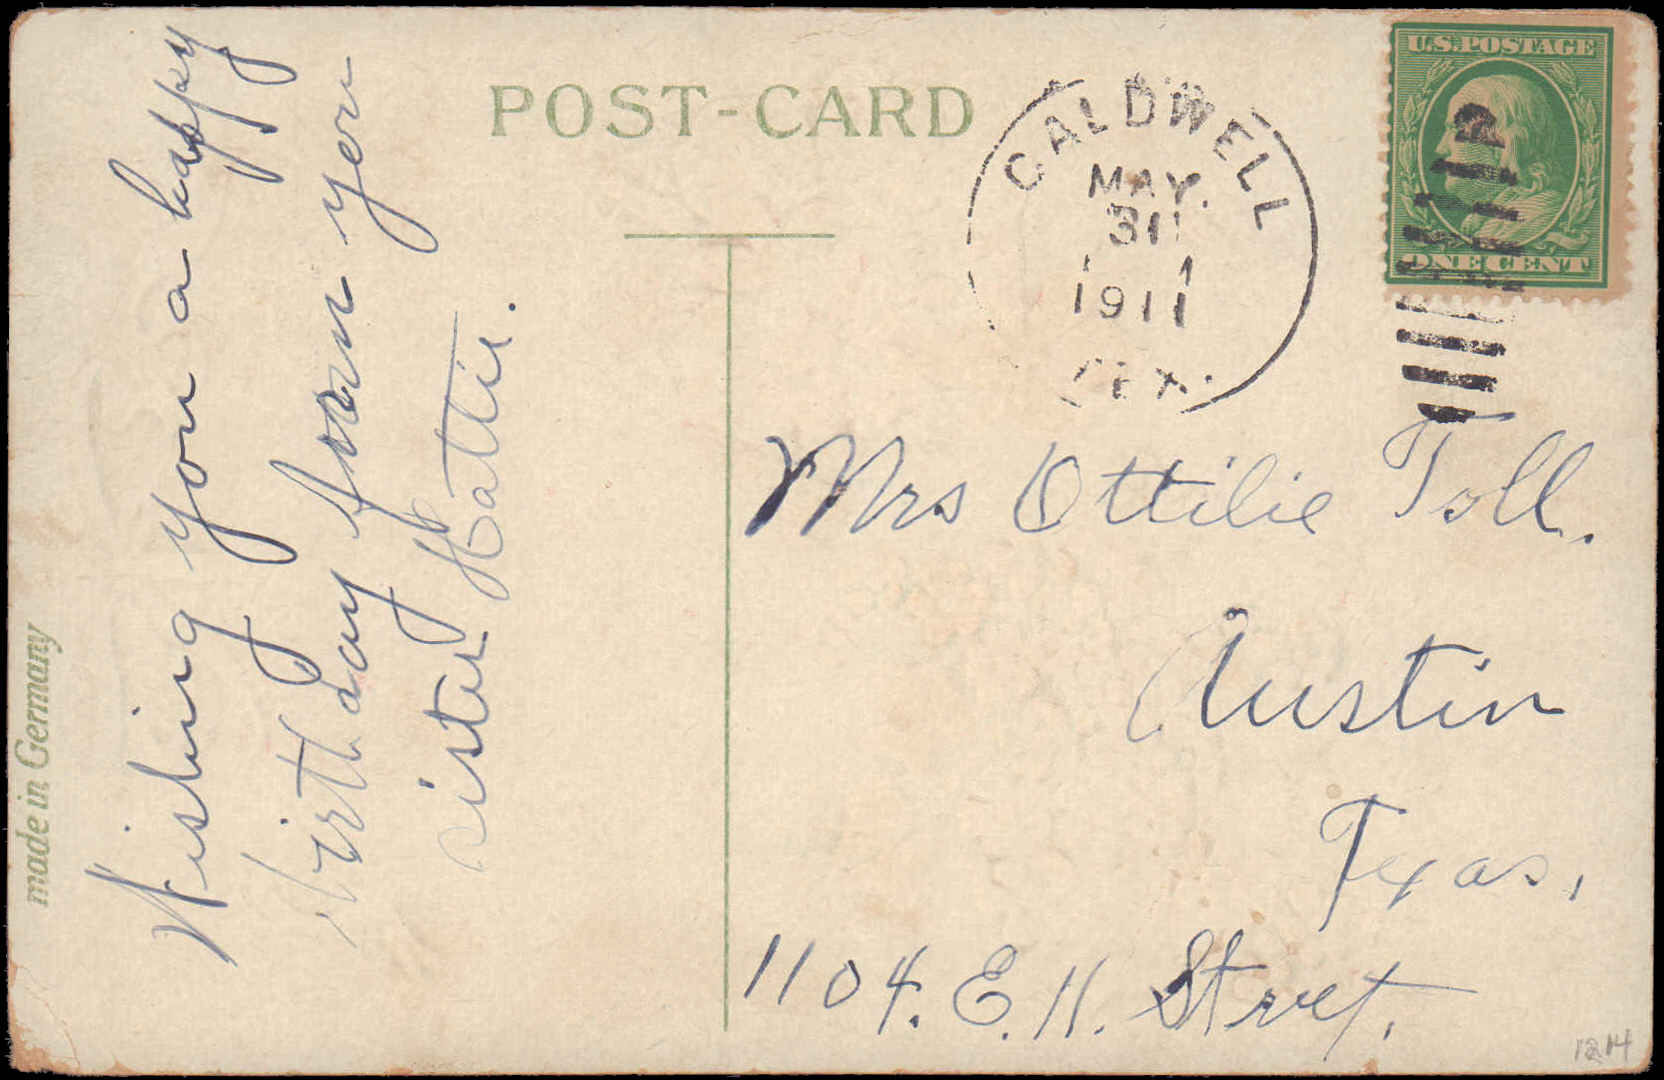 POST-CARD
U.S. POSTAGE
ONE CENT
CALDWELL
MAY.
31
1911
TEX.
Wishing you a happy
birth day from your
sister Hattie.
Mrs Ottilie Toll.
Austin
Texas,
1104. E. 11. Street.
made in Germany
1214